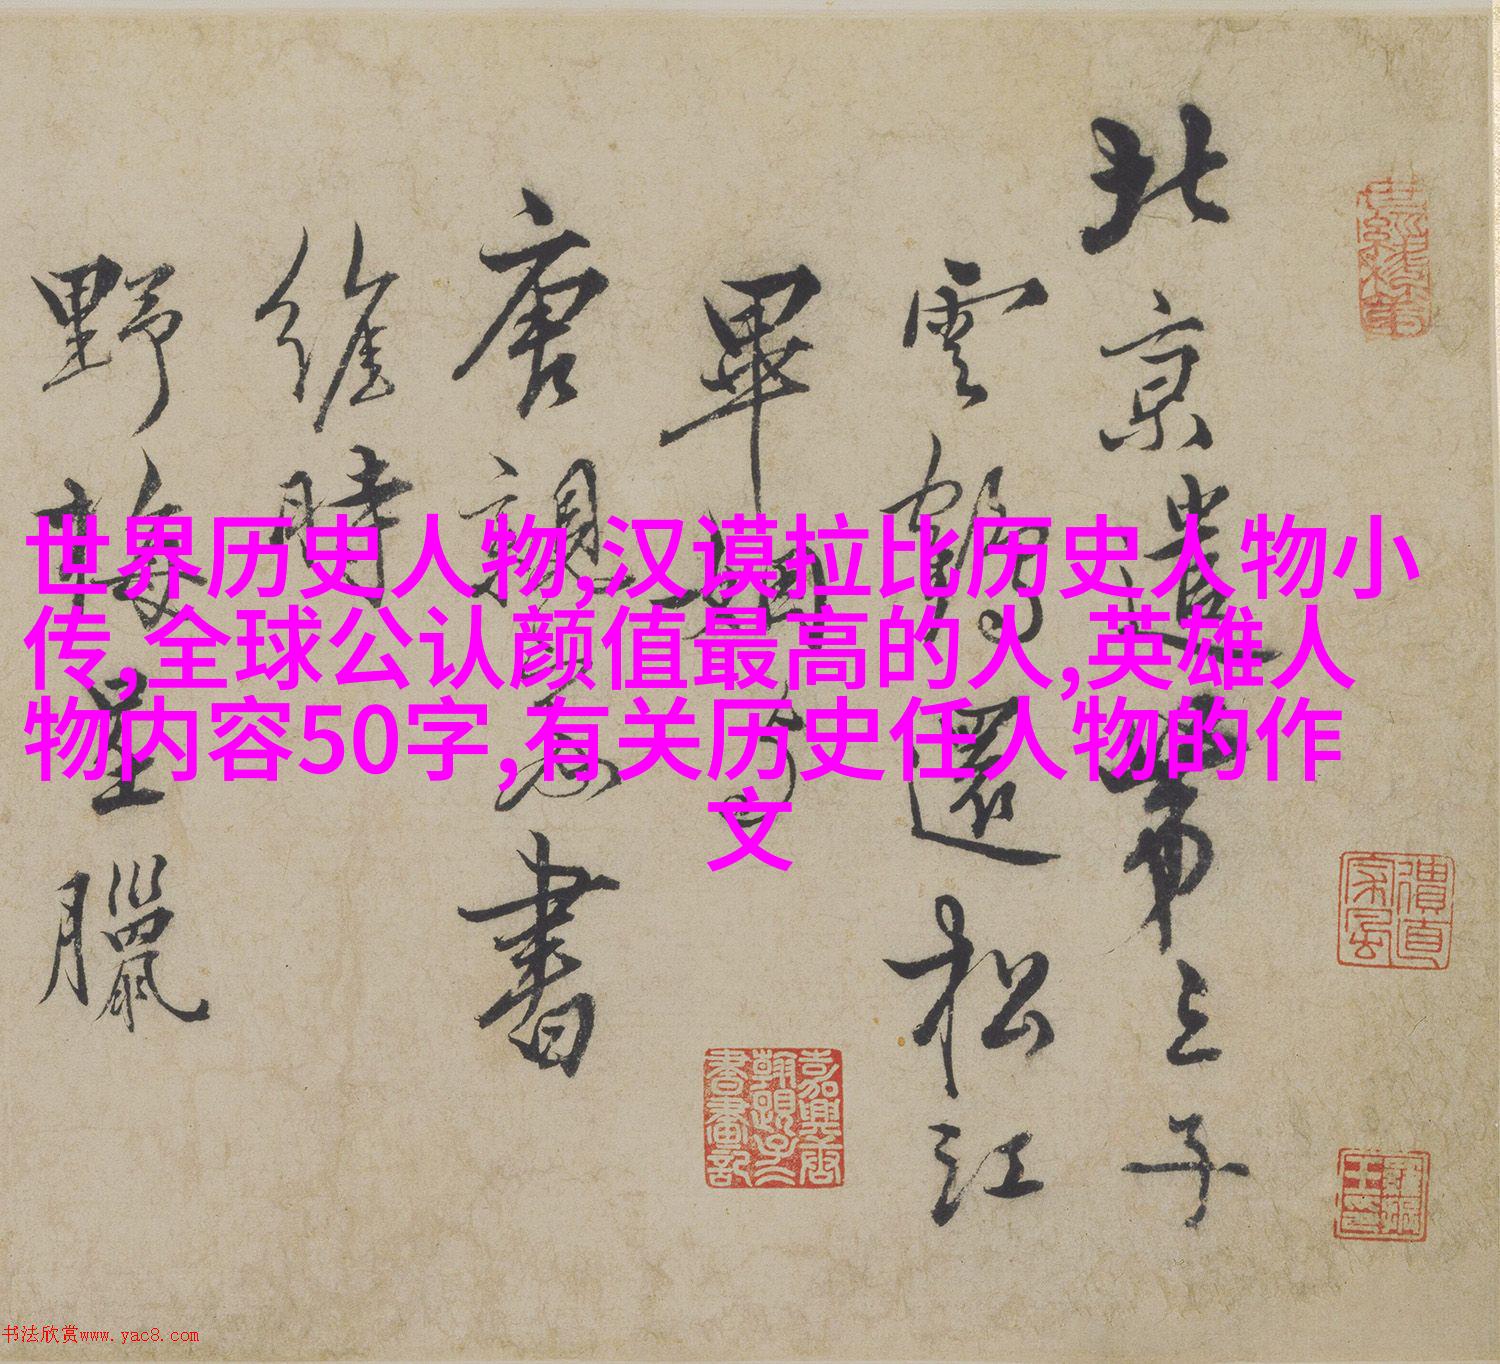 北京遣第三子
雲鶴還松江
畢姻
唐親書
維時
野梅呈臘
世界历史人物,汉谟拉比历史人物小
传,全球公认颜值最高的人,英雄人
物内容50字,有关历史任人物的作
文
书法欣赏www.yac8.com